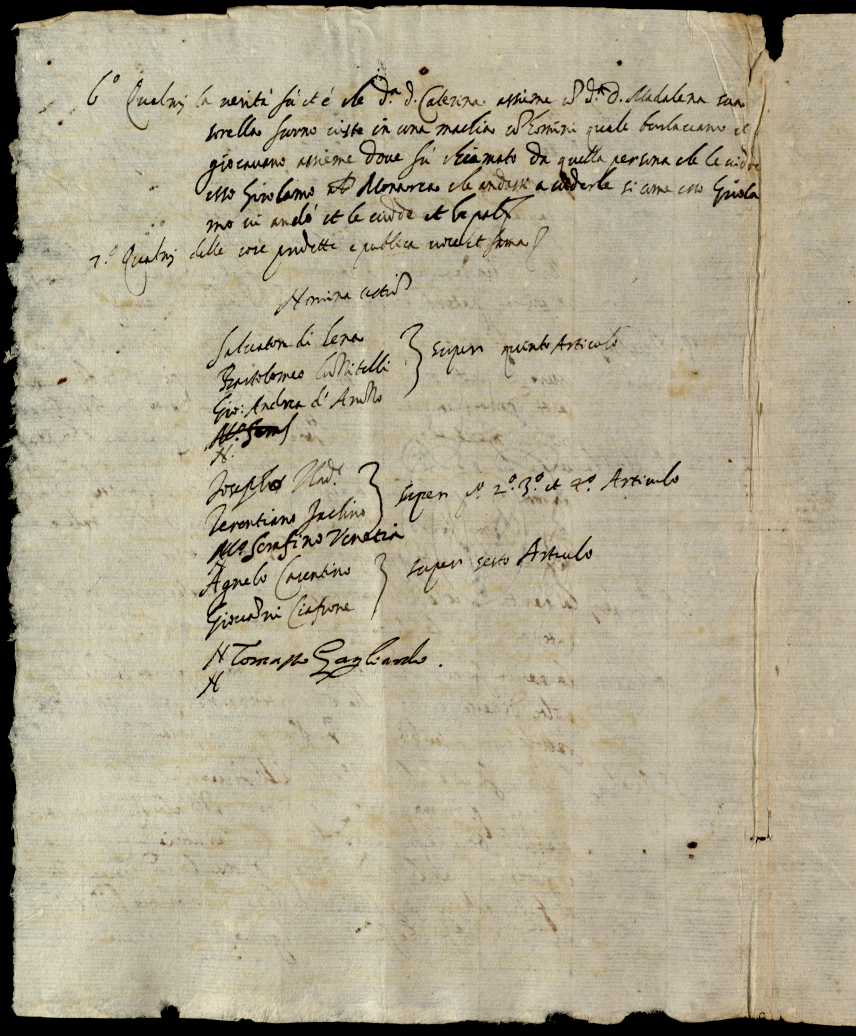 6° Qualm.te la verità fù et è che d.a d. Caterina assieme co d.a d. Madalena sua
sorella furno viste in una machia co homini quale burlavano et
giocavano assieme dove fù chiamato da quella persona che le vidde
esso Girolamo Monarca che andasse a vederle si come esso Girola
mo vi andò et le vidde et
7.° delle cose predette è publica voce et fama
Nomina testiu
Salvator di Lena
Bartolomeo
Gio: Andrea d'
super quinto Articolo
N.
Joseph
Terentiano
M.o Serafino Venetia
super p.° 2.° 3.° et 4.° Articulo
Agnelo Cosentino
Giovanni Ciafrone
super sesto Articulo
N Tomasso Gagliardo.
N